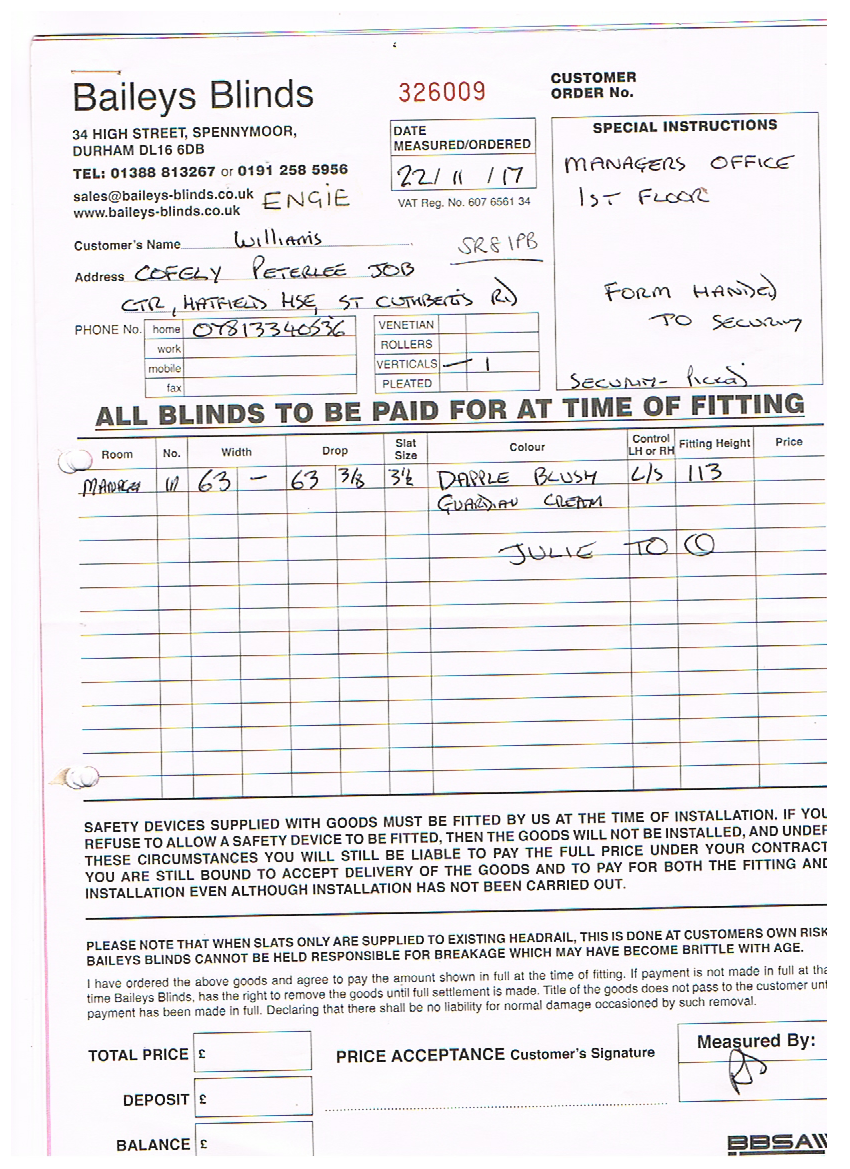 Baileys Blinds
326009
CUSTOMER
ORDER No.
34 HIGH STREET, SPENNYMOOR,
DURHAM DL16 6DB
TEL: 01388 813267 or 0191 258 5956
sales@baileys-blinds.co.uk
www.baileys-blinds.co.uk
ENGIE
DATE
MEASURED/ORDERED
22/11/17
VAT Reg. No. 607 6561 34
SPECIAL INSTRUCTIONS
MANAGERS OFFICE
1ST FLOOR
FORM HANDED
TO SECURITY
SECURITY -
Customer's Name Williams
SR8 1PB
Address COFELY PETERLEE JOB
CTR, HATFIELD HSE, ST CUTHBERTS RD
PHONE No. home 07813340536
work
mobile
fax
VENETIAN
ROLLERS
VERTICALS — 1
PLEATED
ALL BLINDS TO BE PAID FOR AT TIME OF FITTING
Room No. Width Drop Slat Size Colour Control LH or RH Fitting Height Price
MANAGER (1) 63 - 63 3/8 3½ DAPPLE BLUSH L/S 113
GUARDIAN CREAM
JULIE TO
SAFETY DEVICES SUPPLIED WITH GOODS MUST BE FITTED BY US AT THE TIME OF INSTALLATION. IF YOU
REFUSE TO ALLOW A SAFETY DEVICE TO BE FITTED, THEN THE GOODS WILL NOT BE INSTALLED, AND UNDER
THESE CIRCUMSTANCES YOU WILL STILL BE LIABLE TO PAY THE FULL PRICE UNDER YOUR CONTRACT
YOU ARE STILL BOUND TO ACCEPT DELIVERY OF THE GOODS AND TO PAY FOR BOTH THE FITTING AND
INSTALLATION EVEN ALTHOUGH INSTALLATION HAS NOT BEEN CARRIED OUT.
PLEASE NOTE THAT WHEN SLATS ONLY ARE SUPPLIED TO EXISTING HEADRAIL, THIS IS DONE AT CUSTOMERS OWN RISK
BAILEYS BLINDS CANNOT BE HELD RESPONSIBLE FOR BREAKAGE WHICH MAY HAVE BECOME BRITTLE WITH AGE.
I have ordered the above goods and agree to pay the amount shown in full at the time of fitting. If payment is not made in full at tha
time Baileys Blinds, has the right to remove the goods until full settlement is made. Title of the goods does not pass to the customer unt
payment has been made in full. Declaring that there shall be no liability for normal damage occasioned by such removal.
TOTAL PRICE £
PRICE ACCEPTANCE Customer's Signature
Measured By:
DEPOSIT £
BALANCE £
BBSA